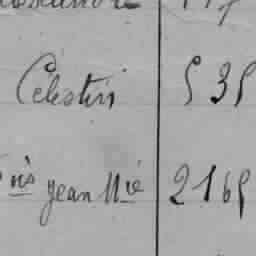 Célestin 535
ns jean Mie 2165